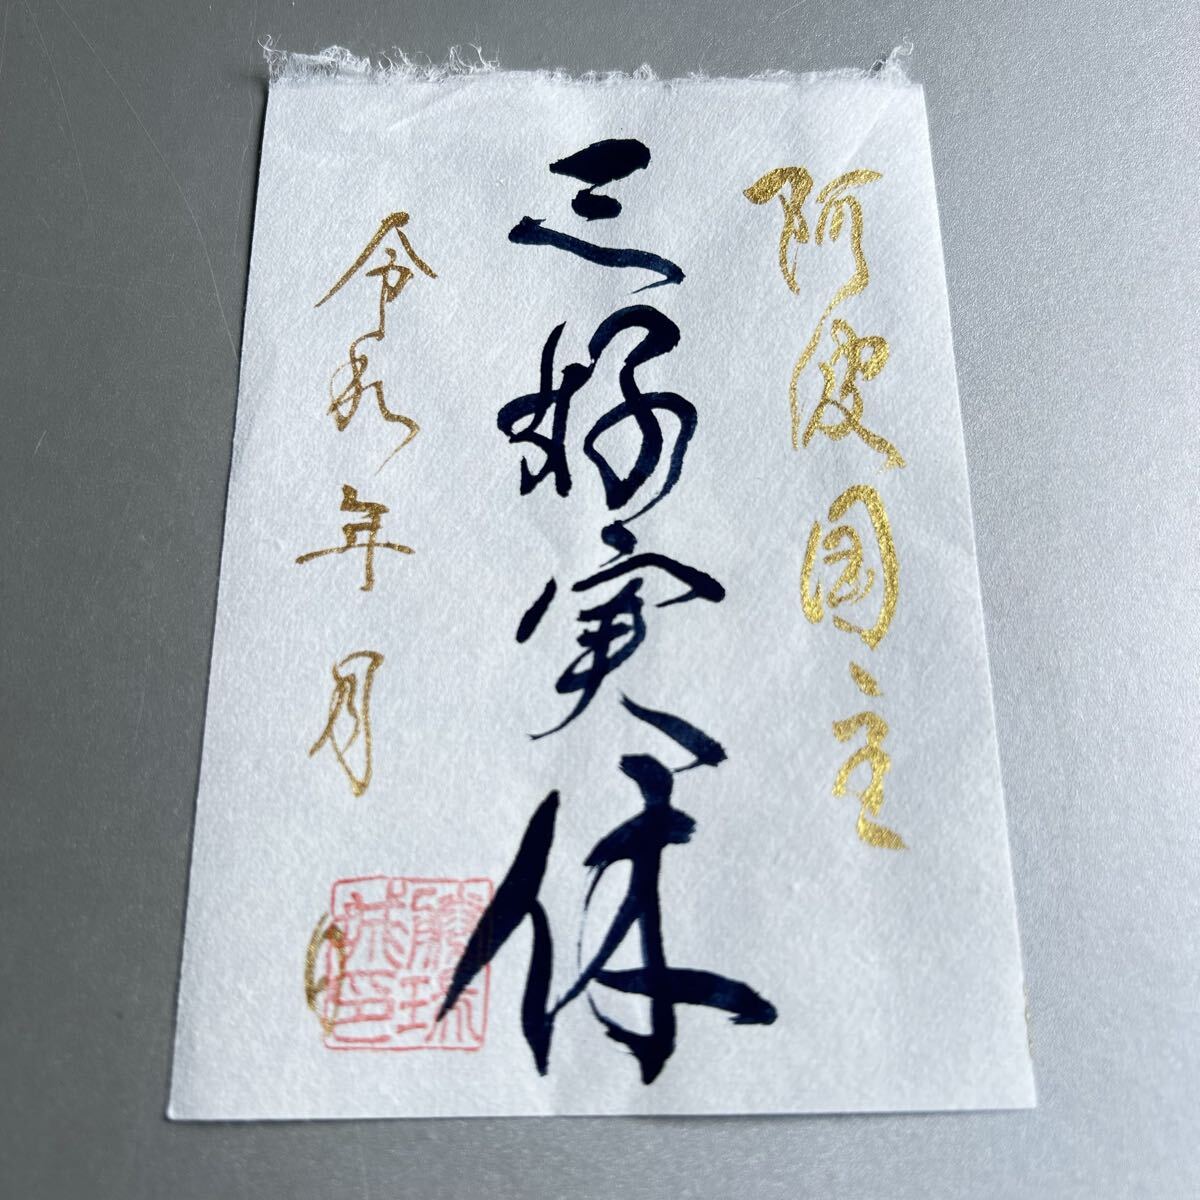 阿波国主
三好実休
令和年月日